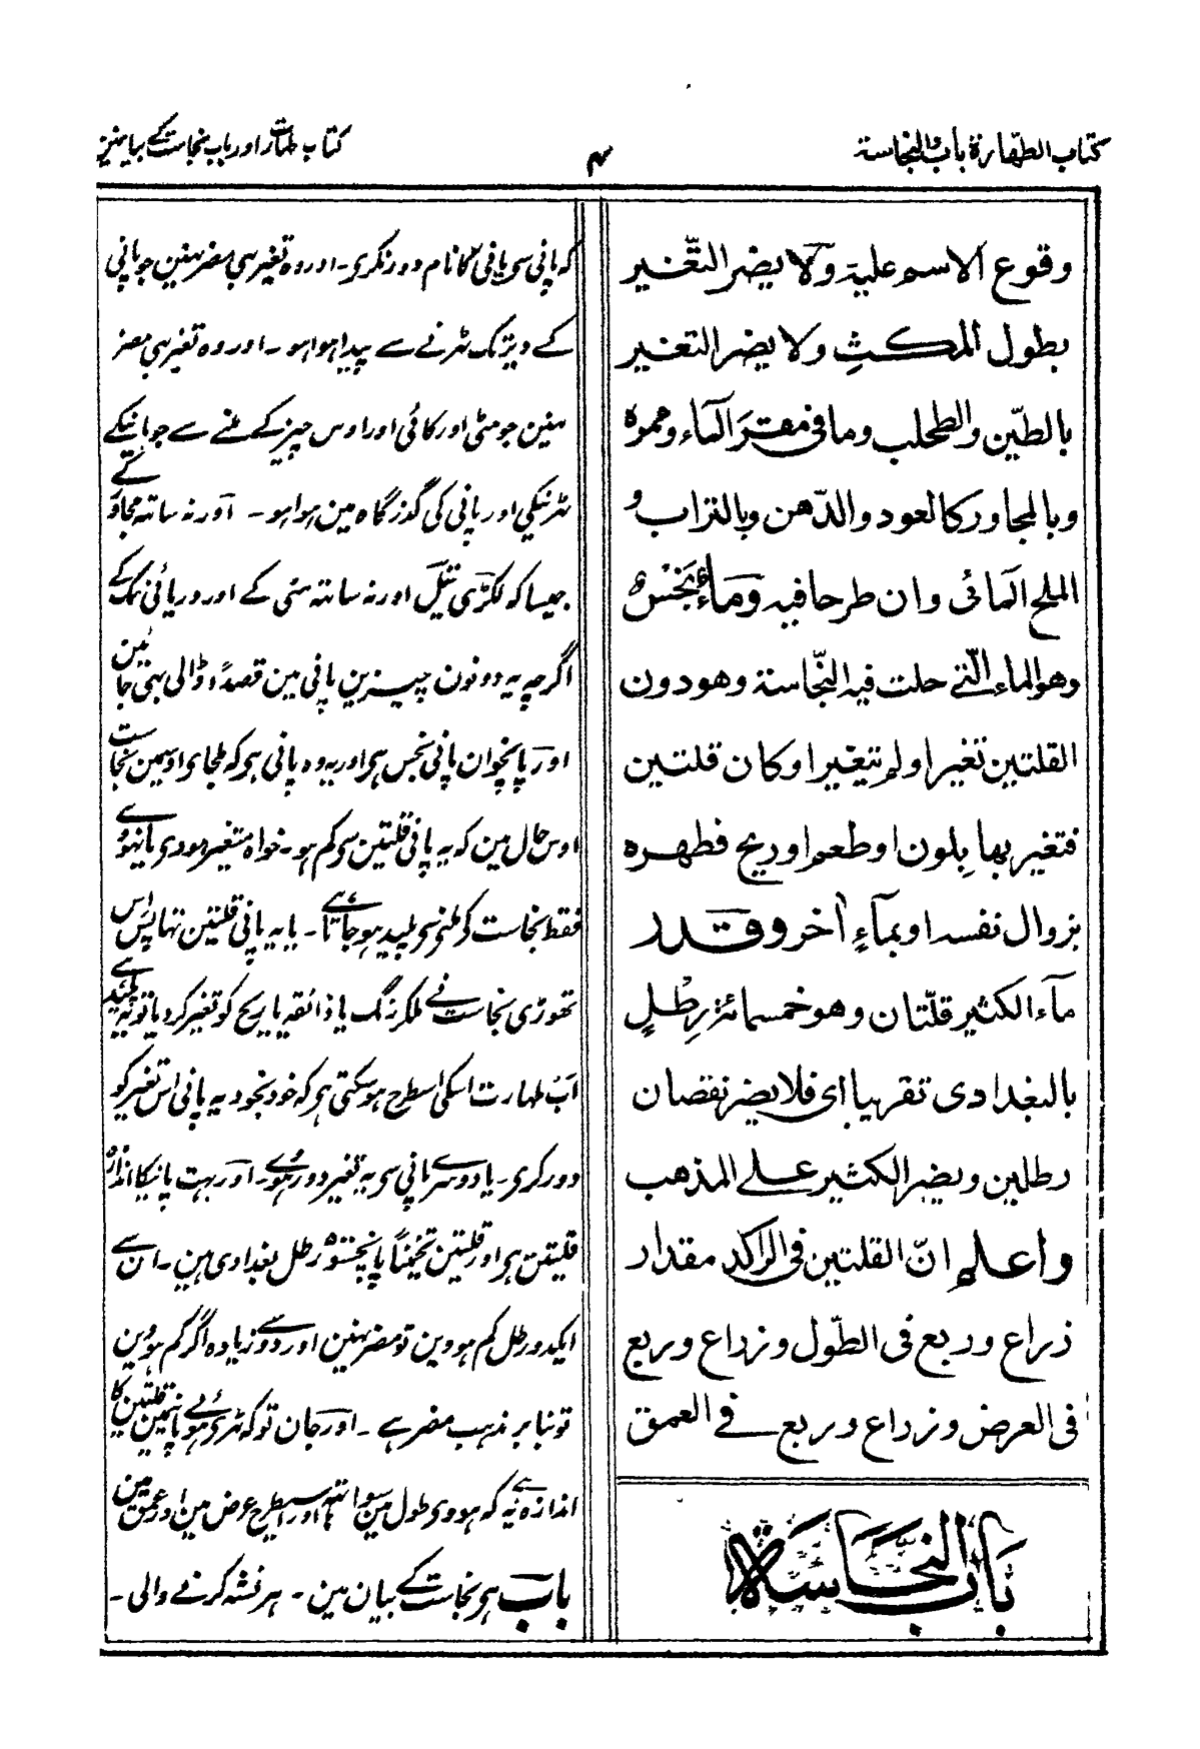 كتاب الطهارة باب النجاسة
۴
کتاب طہارت اور باب نجاست کے بیانمین
وقوع الاسم عليه ولا يضر التّغير
بطول المكث ولا يضر التغير
بالطّين والطحلب وما فى مقر الماء وممره
وبالمجاور كالعود والدّهن وبالتراب و
الملح المائى وان طرحا فيه وماء نجس
وهو الماء التى حلت فيه النّجاسة وهو دون
القلتين تغير اولم يتغير او كان قلتين
فتغير بها بلون او طعم او ريح فطهره
بزوال نفسه او بماء أخر وقدر
ماء الكثير قلّتان وهو خمسمائة رطل
بالبغدادى تقريبا اى فلا يضر نقصان
رطلين ويضر الكثير على المذهب
واعلم انّ القلتين فى الراكد مقدار
ذراع وربع فى الطّول وذراع وربع
فى العرض وذراع وربع فى العمق
باب النجاسة
کہ پانی سی پانی کا نام دور نکری۔ اور وہ تغیر بہی مضر نہین جو پانی
کے دیر تک ٹہرنے سے پیدا ہوا ہو۔ اور وہ تغیر بہی مضر
نہین جو مٹی اور کائی اور اوس چیز کے ملنے سے جو پانیکے
ٹہرنیکی اور پانی کی گذرگاہ مین ہوا ہو۔ اور نہ ساتہ مجاور کے
جیسا کہ لکڑی تیل اور نہ ساتہ مٹی کے اور دریائی نمک کے
اگرچہ یہ دونون چیزین پانی مین قصداً ڈالی بہی جائین
اور پانچوان پانی نجس ہی اور یہ وہ پانی ہی کہ ملجاوی اوسمین نجاست
اوس حال مین کہ یہ پانی قلتین سی کم ہو۔ خواہ متغیر ہووی یا نہووے
فقط نجاست کو ملنی سی پلید ہو جاتا ہے۔ یا یہ پانی قلتین تہا پس اس
تہوڑی نجاست نے ملکر رنگ یا ذائقہ یا ریح کو تغیر کردیا تو یہ پلید ہے
اب طہارت اسکی اسطرح ہوسکتی ہی کہ خود بخود یہ پانی اس تغیر کو
دور کری۔ یا دوسرے پانی سی یہ تغیر دور ہووے۔ اور بہت پانیکا اندازہ
قلتین ہی اور قلتین تخمیناً پانچسو رطل بغدادی ہین۔ ان سے
ایکدو رطل کم ہووین تو مضر نہین اور دو سے زیادہ اگر کم ہووین
تو بنا بر مذہب مضر ہے۔ اور جان تو کہ ٹہرے ہوئے پانیمین قلتین کا
اندازہ یہ ہے کہ ہووی طول مین سوا ہاتہ اور اسیطرح عرض مین اور عمق مین
باب ہی نجاست کے بیان مین۔ ہر نشہ کرنے والی۔